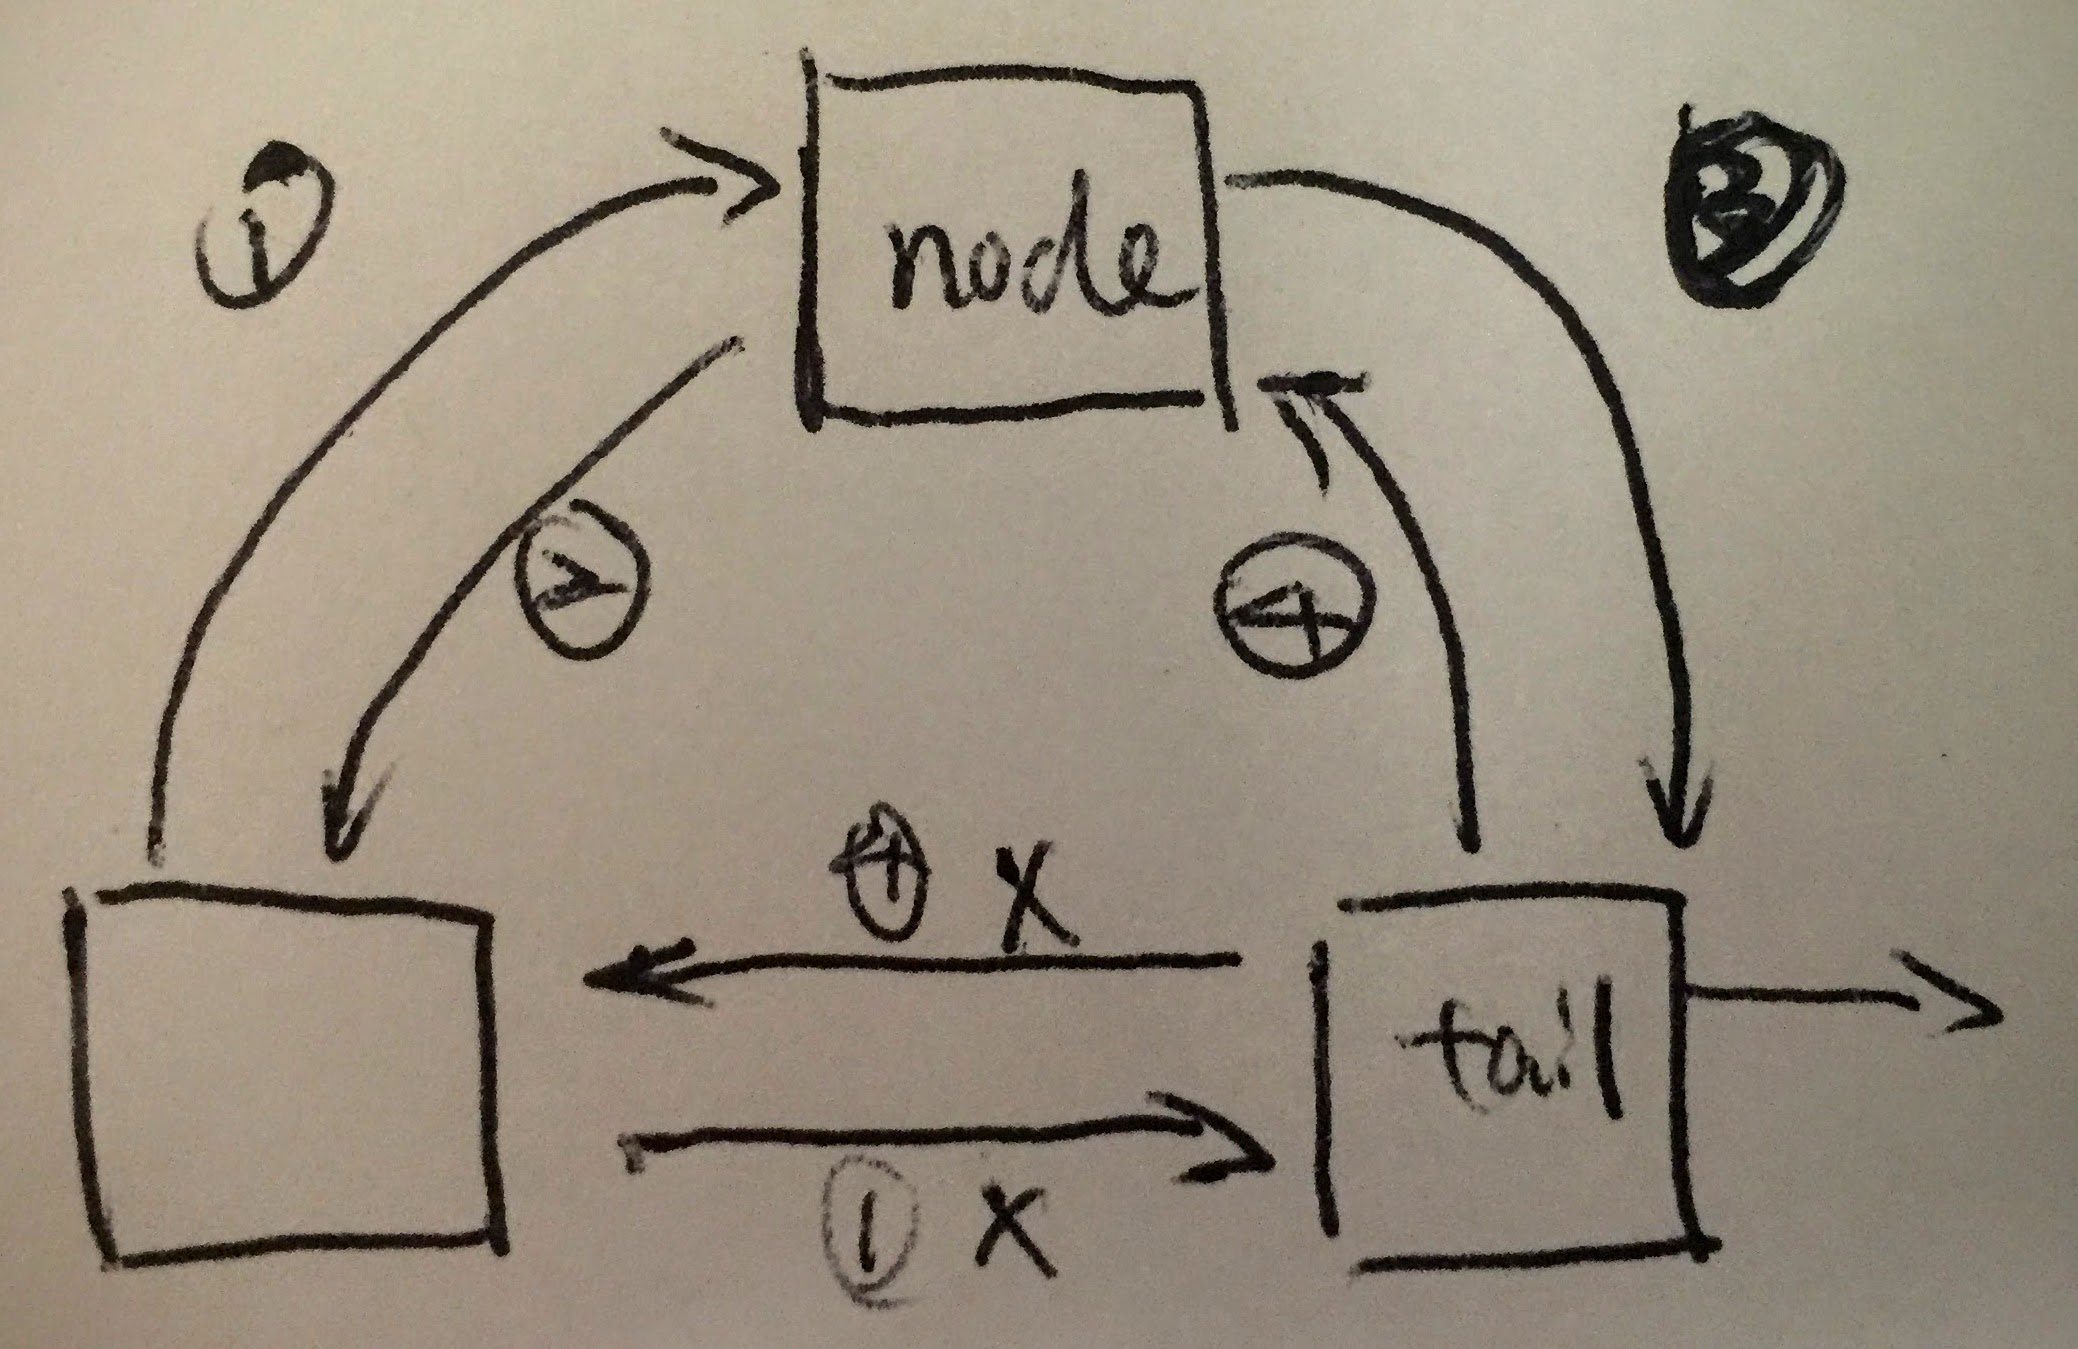 ①
node
③
②
④
④ X
tail
① X